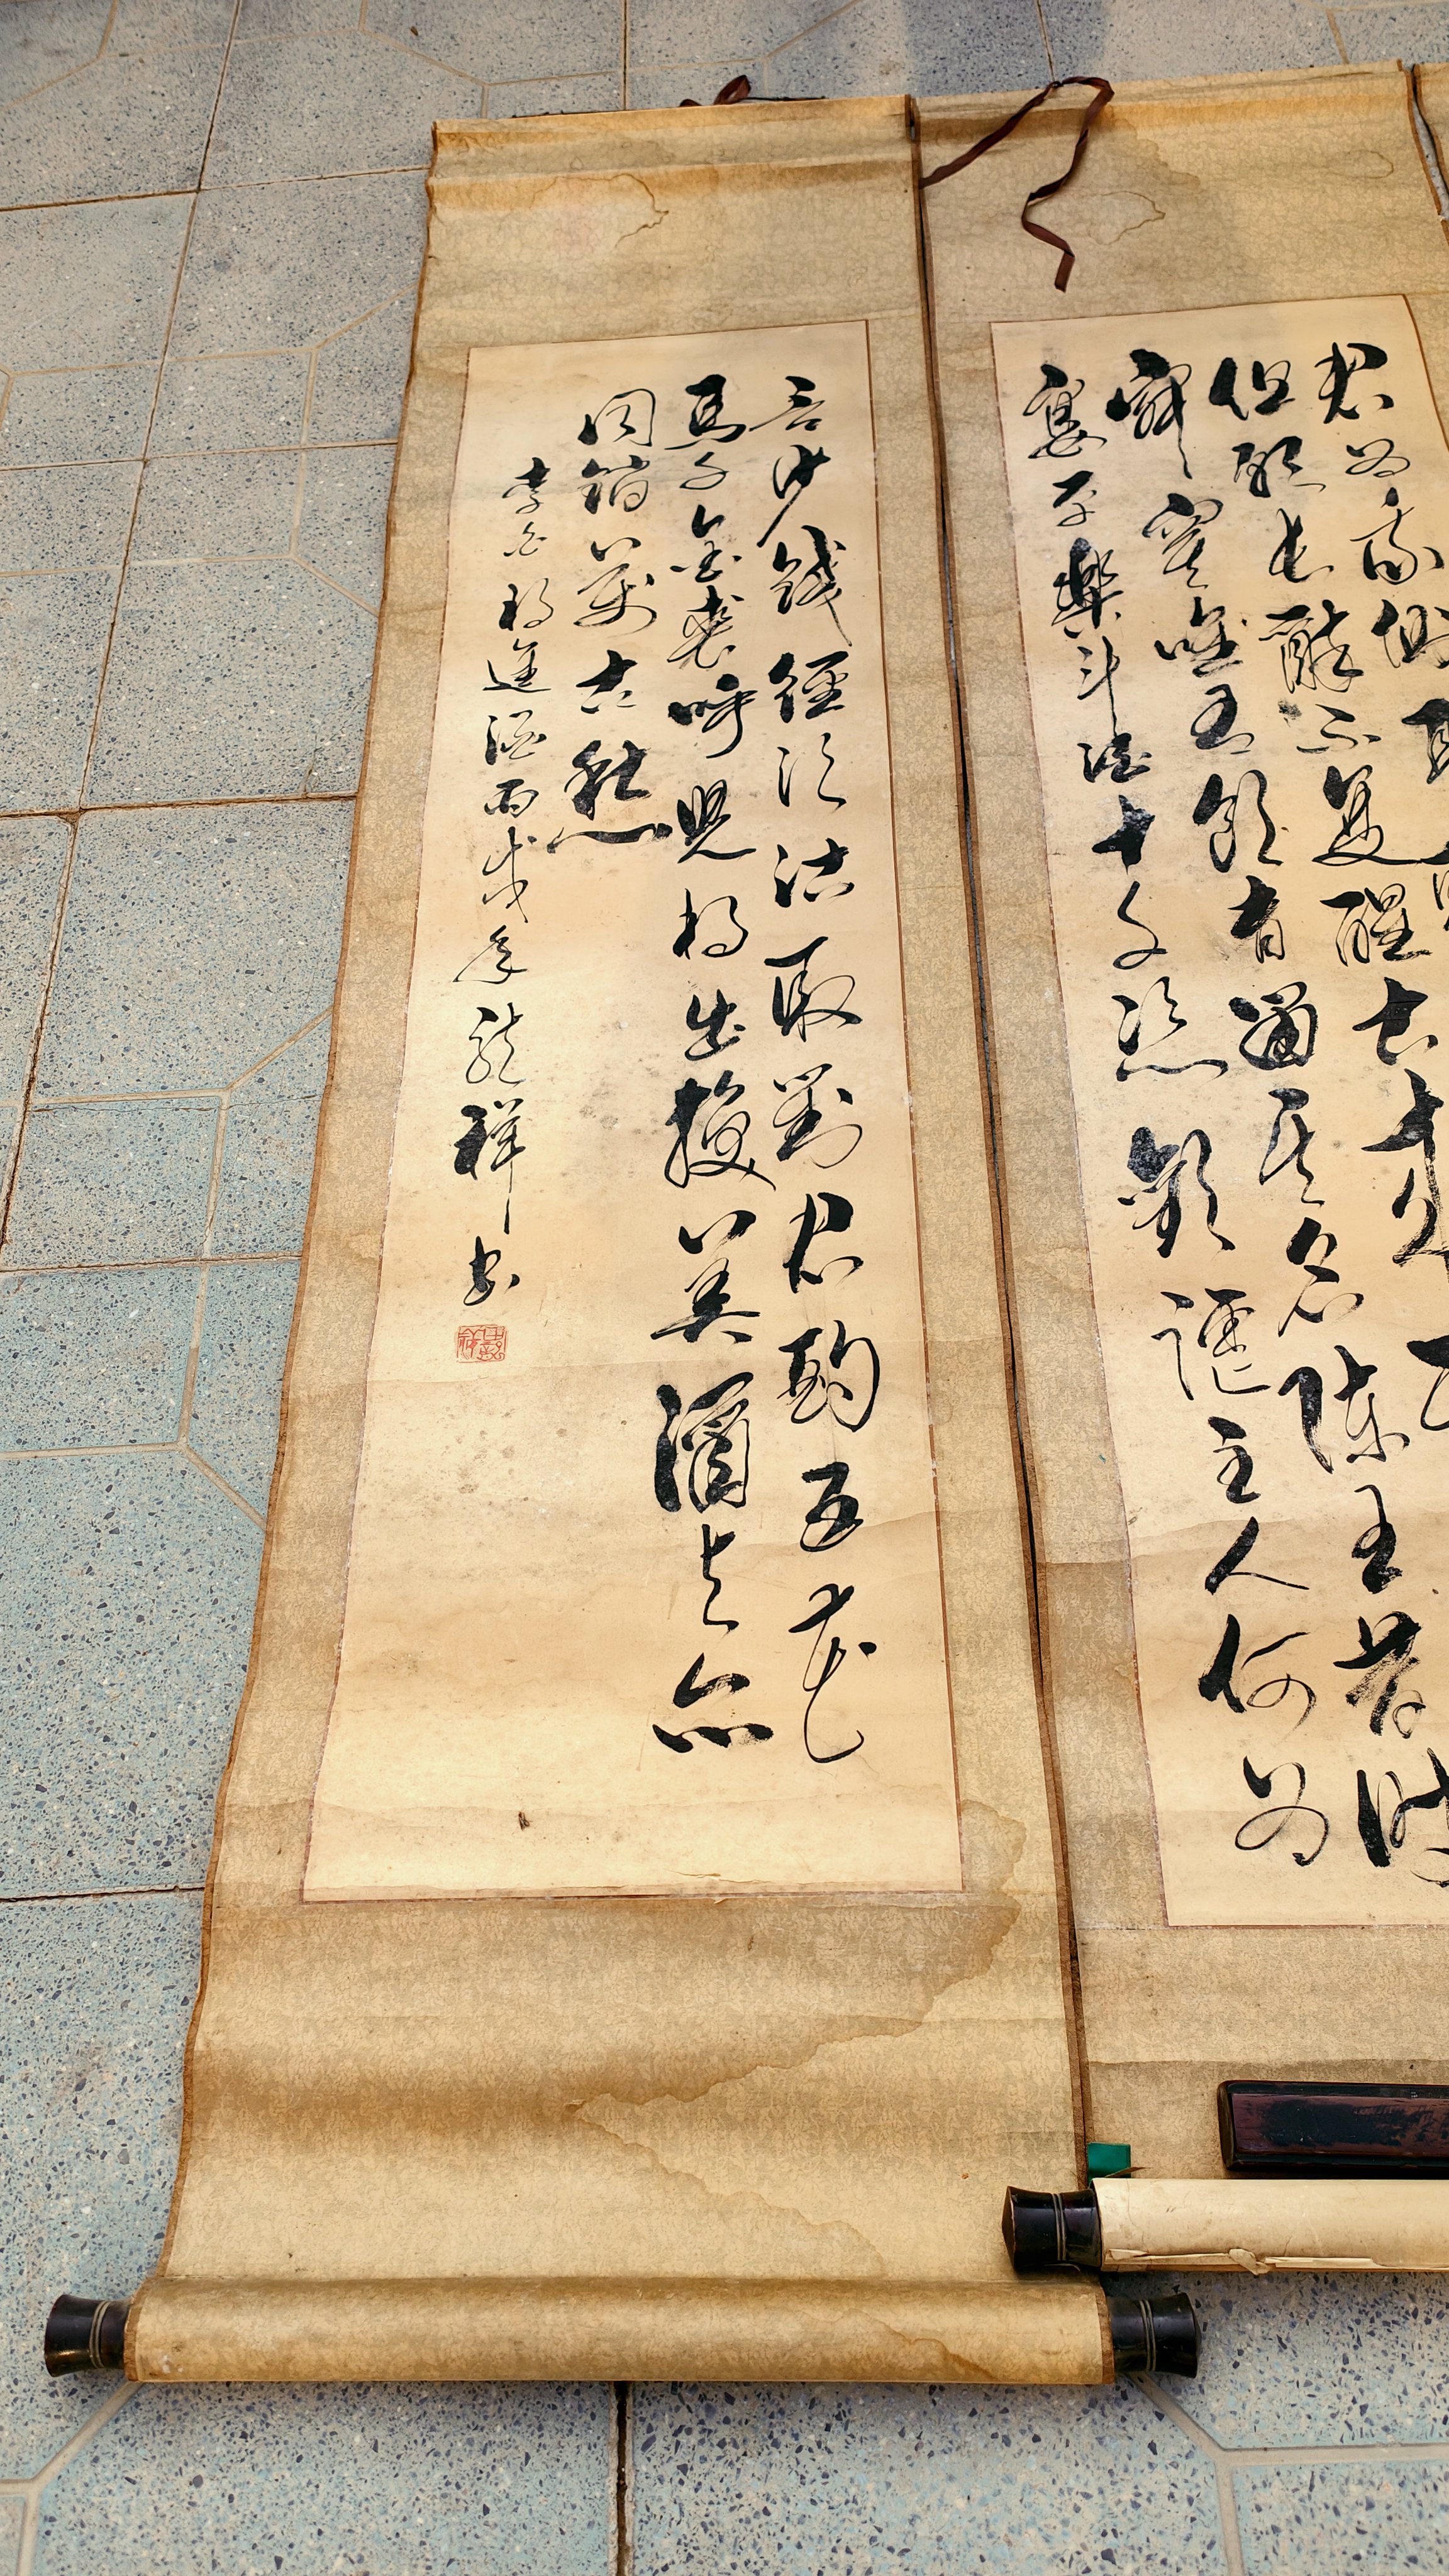 君為我側耳
但願長醉不復醒古来
寂寞唯有飲者留其名陳王昔時
宴平樂斗酒十千恣歡謔主人何為
言少錢徑須沽取對君酌五花
馬千金裘呼兒将出換美酒与尔
同銷萬古愁
李白将進酒丙戌年龍祥書